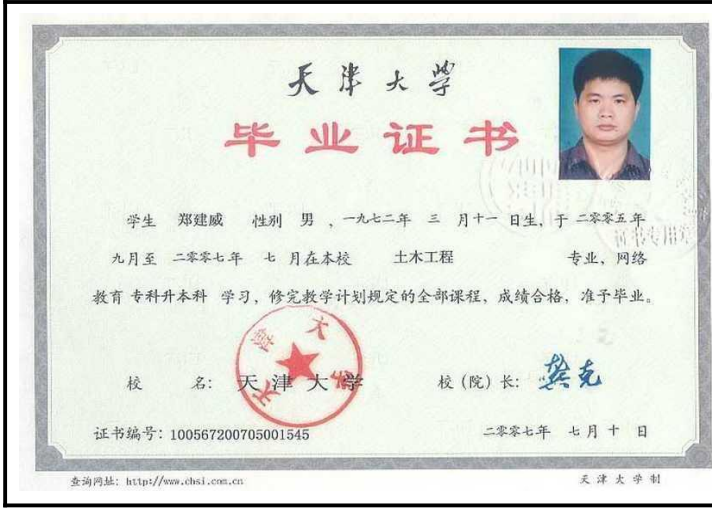 天津大学
毕业证书
学生 郑建威 性别 男 、一九七二年 三 月十一 日生，于 二零零五年
九月至 二零零七年 七 月在本校 土木工程 专业，网络
教育 专科升本科 学习，修完教学计划规定的全部课程，成绩合格，准予毕业。
校 名：天津大学 校（院）长：龚克
天津大学
证书编号：100567200705001545 二零零七年 七月十 日
查询网址：http://www.chsi.com.cn 天津大学制